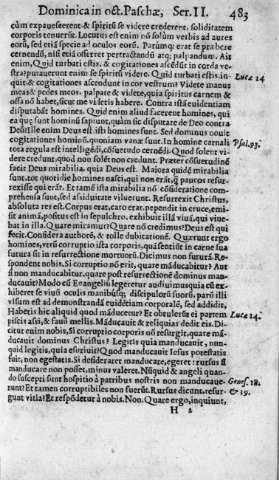 Dominica in oct. Paschæ, Ser. II. 483
cùm expauescerent & spiritū se videre crederent, soliditatem
corporis tenuerūt. Locutus est enim nō solùm verbis ad aures
eorū, sed etiā specie ad oculos eorū. Parumq; erat se præbere
cernendū, nisi etiā offerret pertractandū atq; palpandum. Ait
enim, Quid turbati estis, & cogitationes ascēdūt in corda ve-
stra? putauerunt enim se spiritū videre. Quid turbati estis in-
quit & cogitationes ascendunt in cor vestrum? Videte manus Luce 24
meas & pedes meos. palpate & videte, quia spiritus carnem &
ossa nō habet, sicut me vidētis habere. Contra istā euidentiam
disputabāt homines. Quid enim aliud facerent homines, qui
ea quæ sunt hominū sapiunt, quàm sic disputare de Deo contra
Deū? Ille enim Deus est isti homines sunt. Sed dominus nouit
cogitationes hominū, quoniam vanæ sunt. In homine carnali Psal. 93.
tota regula est intelligēdi, cōsuetudo cernēdi. Quod solēt vi-
dere credunt: quod non solēt non credunt. Præter cōsuetudinē
facit Deus mirabilia, quia Deus est. Maiora quidē mirabilia
sunt, tot quotidie homines nasci, qui non erāt, q̄ paucos resur-
rexisse qui erāt. Et tamē ista mirabilia nō cōsideratione com-
prehensa sunt, sed assiduitate viluerunt. Resurrexit Christus,
absoluta res est. Corpus erat, caro erat, pependit in cruce, emi-
sit animā, positus est in sepulchro. exhibuit illā viuā, qui viue-
bat in illa. Quare miramur? Quare nō credimus? Deus est qui
fecit. Considera authorē, & tolle dubitationē. Quærunt ergo
homines, vtrū corruptio ista corporis, quā sentiūt in carne sua
futura sit in resurrectione mortuorū. Dicimus non futurā. Re-
spondent nobis. Si corruptio nō erit, quare māducabitur? Aut
si non manducabitur, quare post resurrectionē dominus man-
ducauit? Modò cū Euangeliū legeretur audiuimus quia nō ex-
hibere se viuū oculis manibusq; discipulorū suorū, parū illi
visum est ad demonstrandā euidētiam corporalē, sed addidit,
Habetis hîc aliquid quod māducetur? Et obtulerūt ei partem Luce 24.
piscis assi, & fauū mellis. Māducauit & reliquias dedit eis. Di-
citur enim nobis, Si corruptio corporis nō resurgit, quare mā-
ducauit dominus Christus? Legistis quia manducauit, nun-
quid legistis, quia esuriuit? Quod manducauit Iesus potestatis
fuit, non egestatis. Si desideraret manducare, egeret: rursus si
manducare non posset, minus valeret. Nūquid & angeli quan-
do suscepti sunt hospitio à patribus nostris non manducaue- Genes. 18.
runt? Et tamen corruptibiles non fuerūt. Rursus dicunt, resur- & 19.
gunt vitia? Et respōdetur à nobis. Non. Quare ergo, inquiunt,
H 2